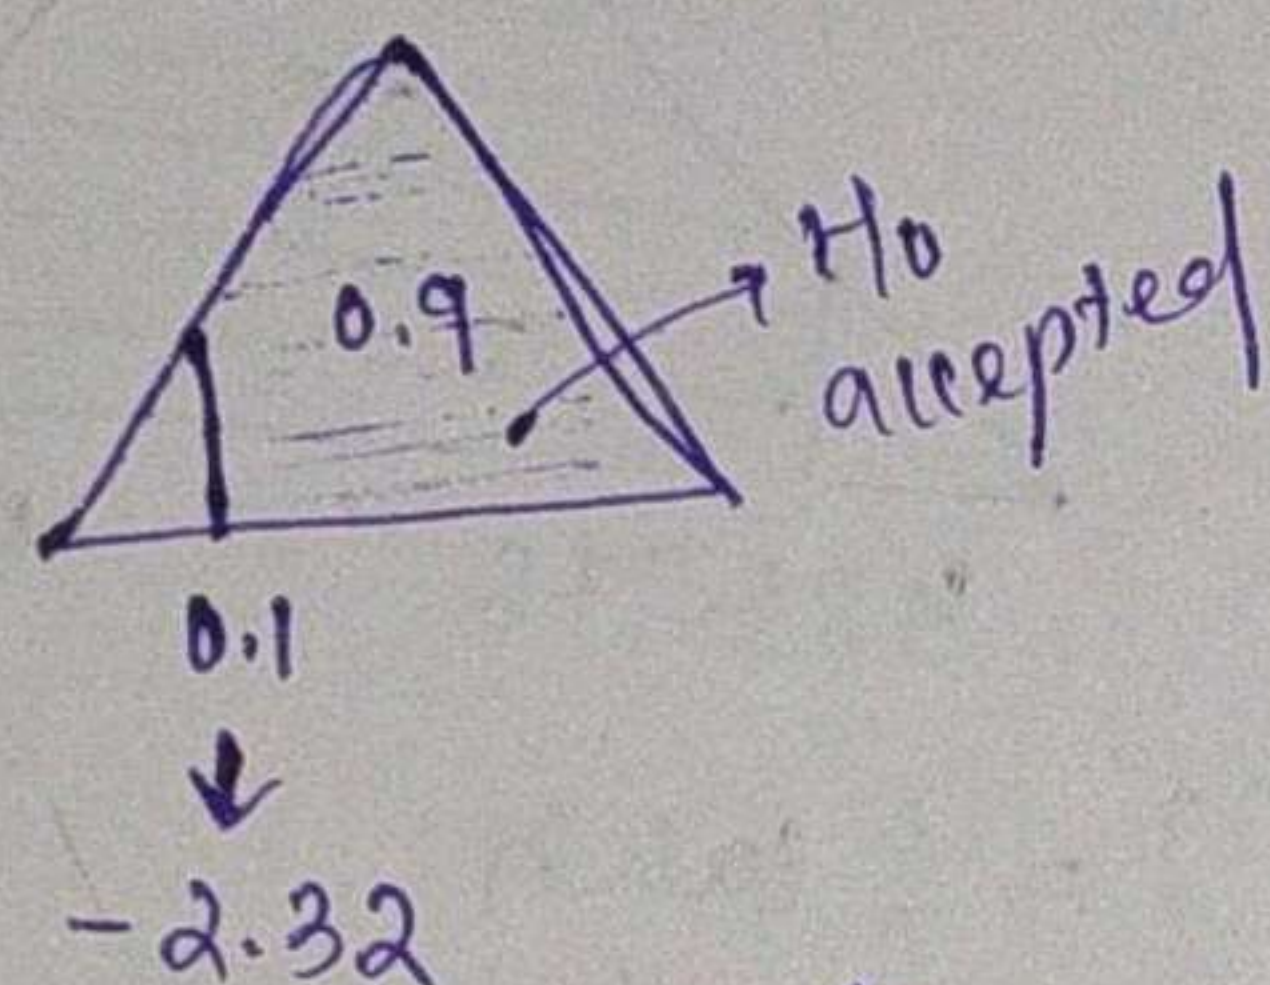 0.9
H0
accepted
0.1
-2.32